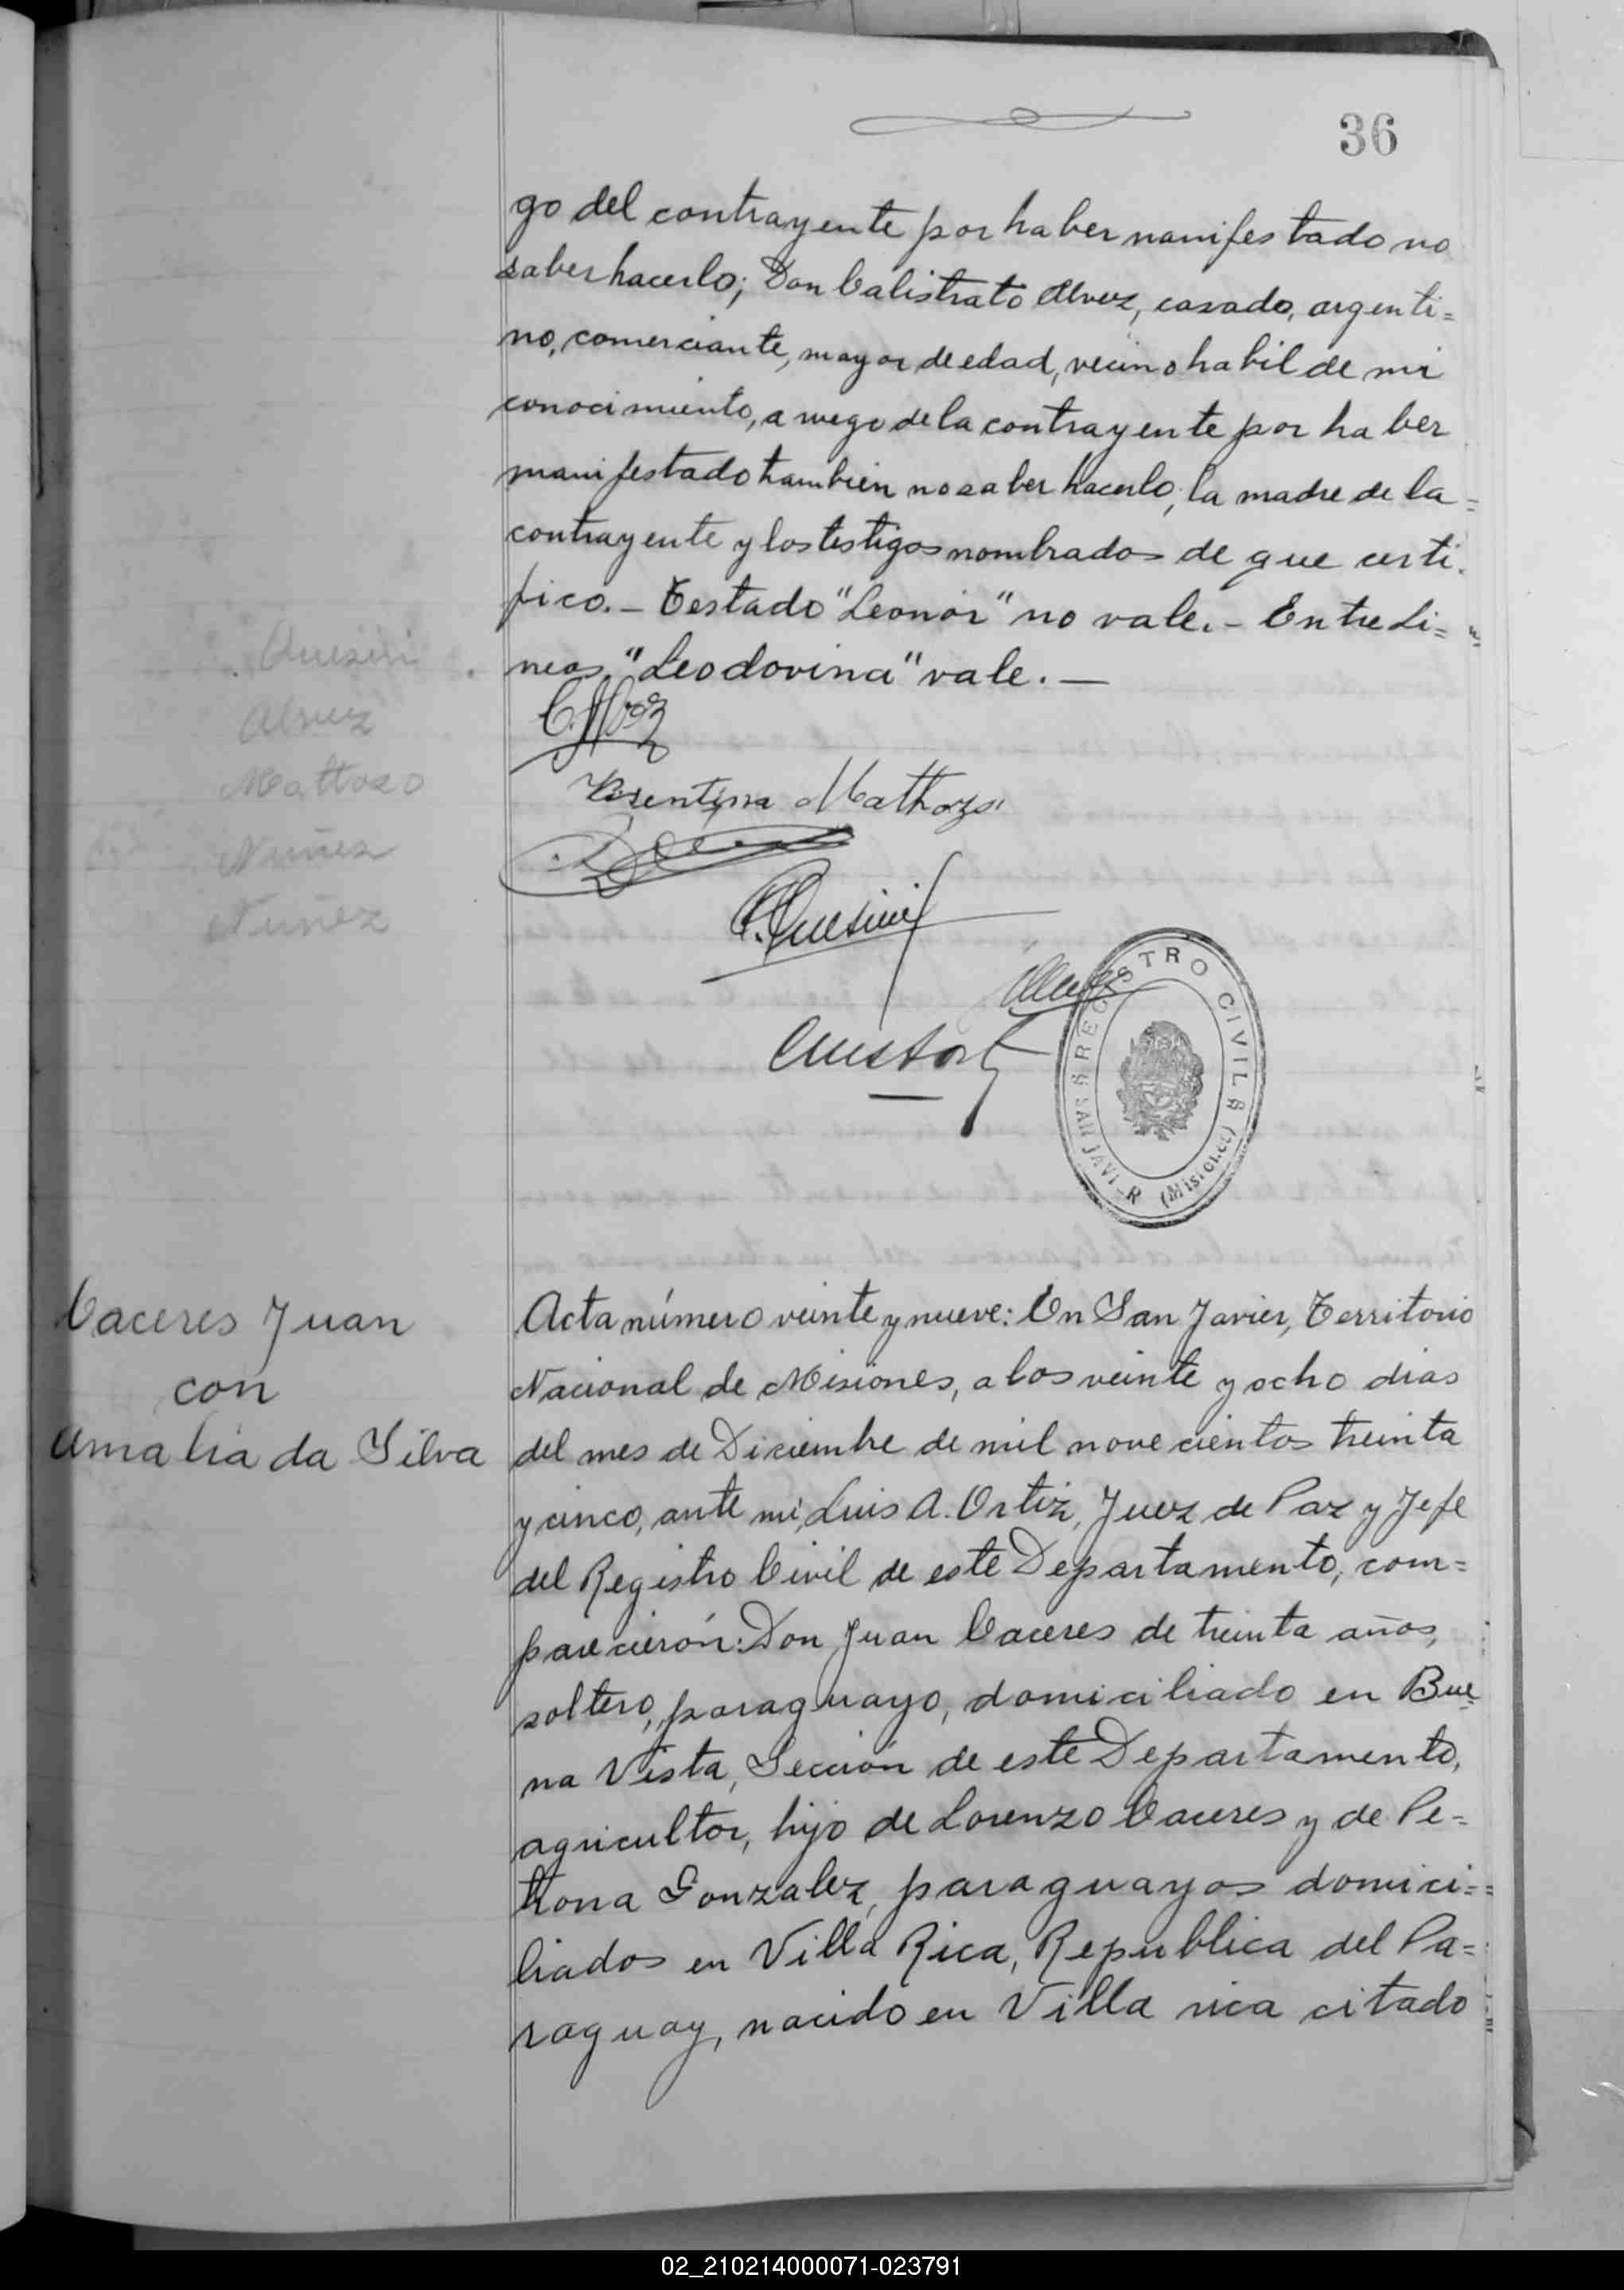 36
go del contrayente por haber manifestado no
saber hacerlo; Don Calistrato Alvez, casado, argenti=
no, comerciante, mayor de edad, vecino habil de mi
conocimiento, a ruego de la contrayente por haber
manifestado tambien no saber hacerlo; la madre de la=
contrayente y los testigos nombrados de que certi.
fico.- Testado "Leonor" no vale.- Entre Li=
neas "Leodovina" vale.-
Quesini
Alvez
Mattozo
Nuñez
Nuñez
Mathozo
Quesini
REGISTRO CIVIL
SAN JAVIER (Misiones)
Caceres Juan
con
Amalia da Silva
Acta número veinte y nueve: En San Javier, Territorio
Nacional de Misiones, a los veinte y ocho dias
del mes de Diciembre de mil novecientos treinta
y cinco, ante mi, Luis A. Ortiz, Juez de Paz y Jefe
del Registro Civil de este Departamento, com=
parecierón: Don Juan Caceres de treinta años,
soltero, paraguayo, domiciliado en Bue=
na Vista, Sección de este Departamento,
agricultor, hijo de Lorenzo Caceres y de Pe=
trona Gonzalez, paraguayos domici=
liados en Villa Rica, Republica del Pa=
raguay, nacido en Villa rica citado
02_210214000071-023791